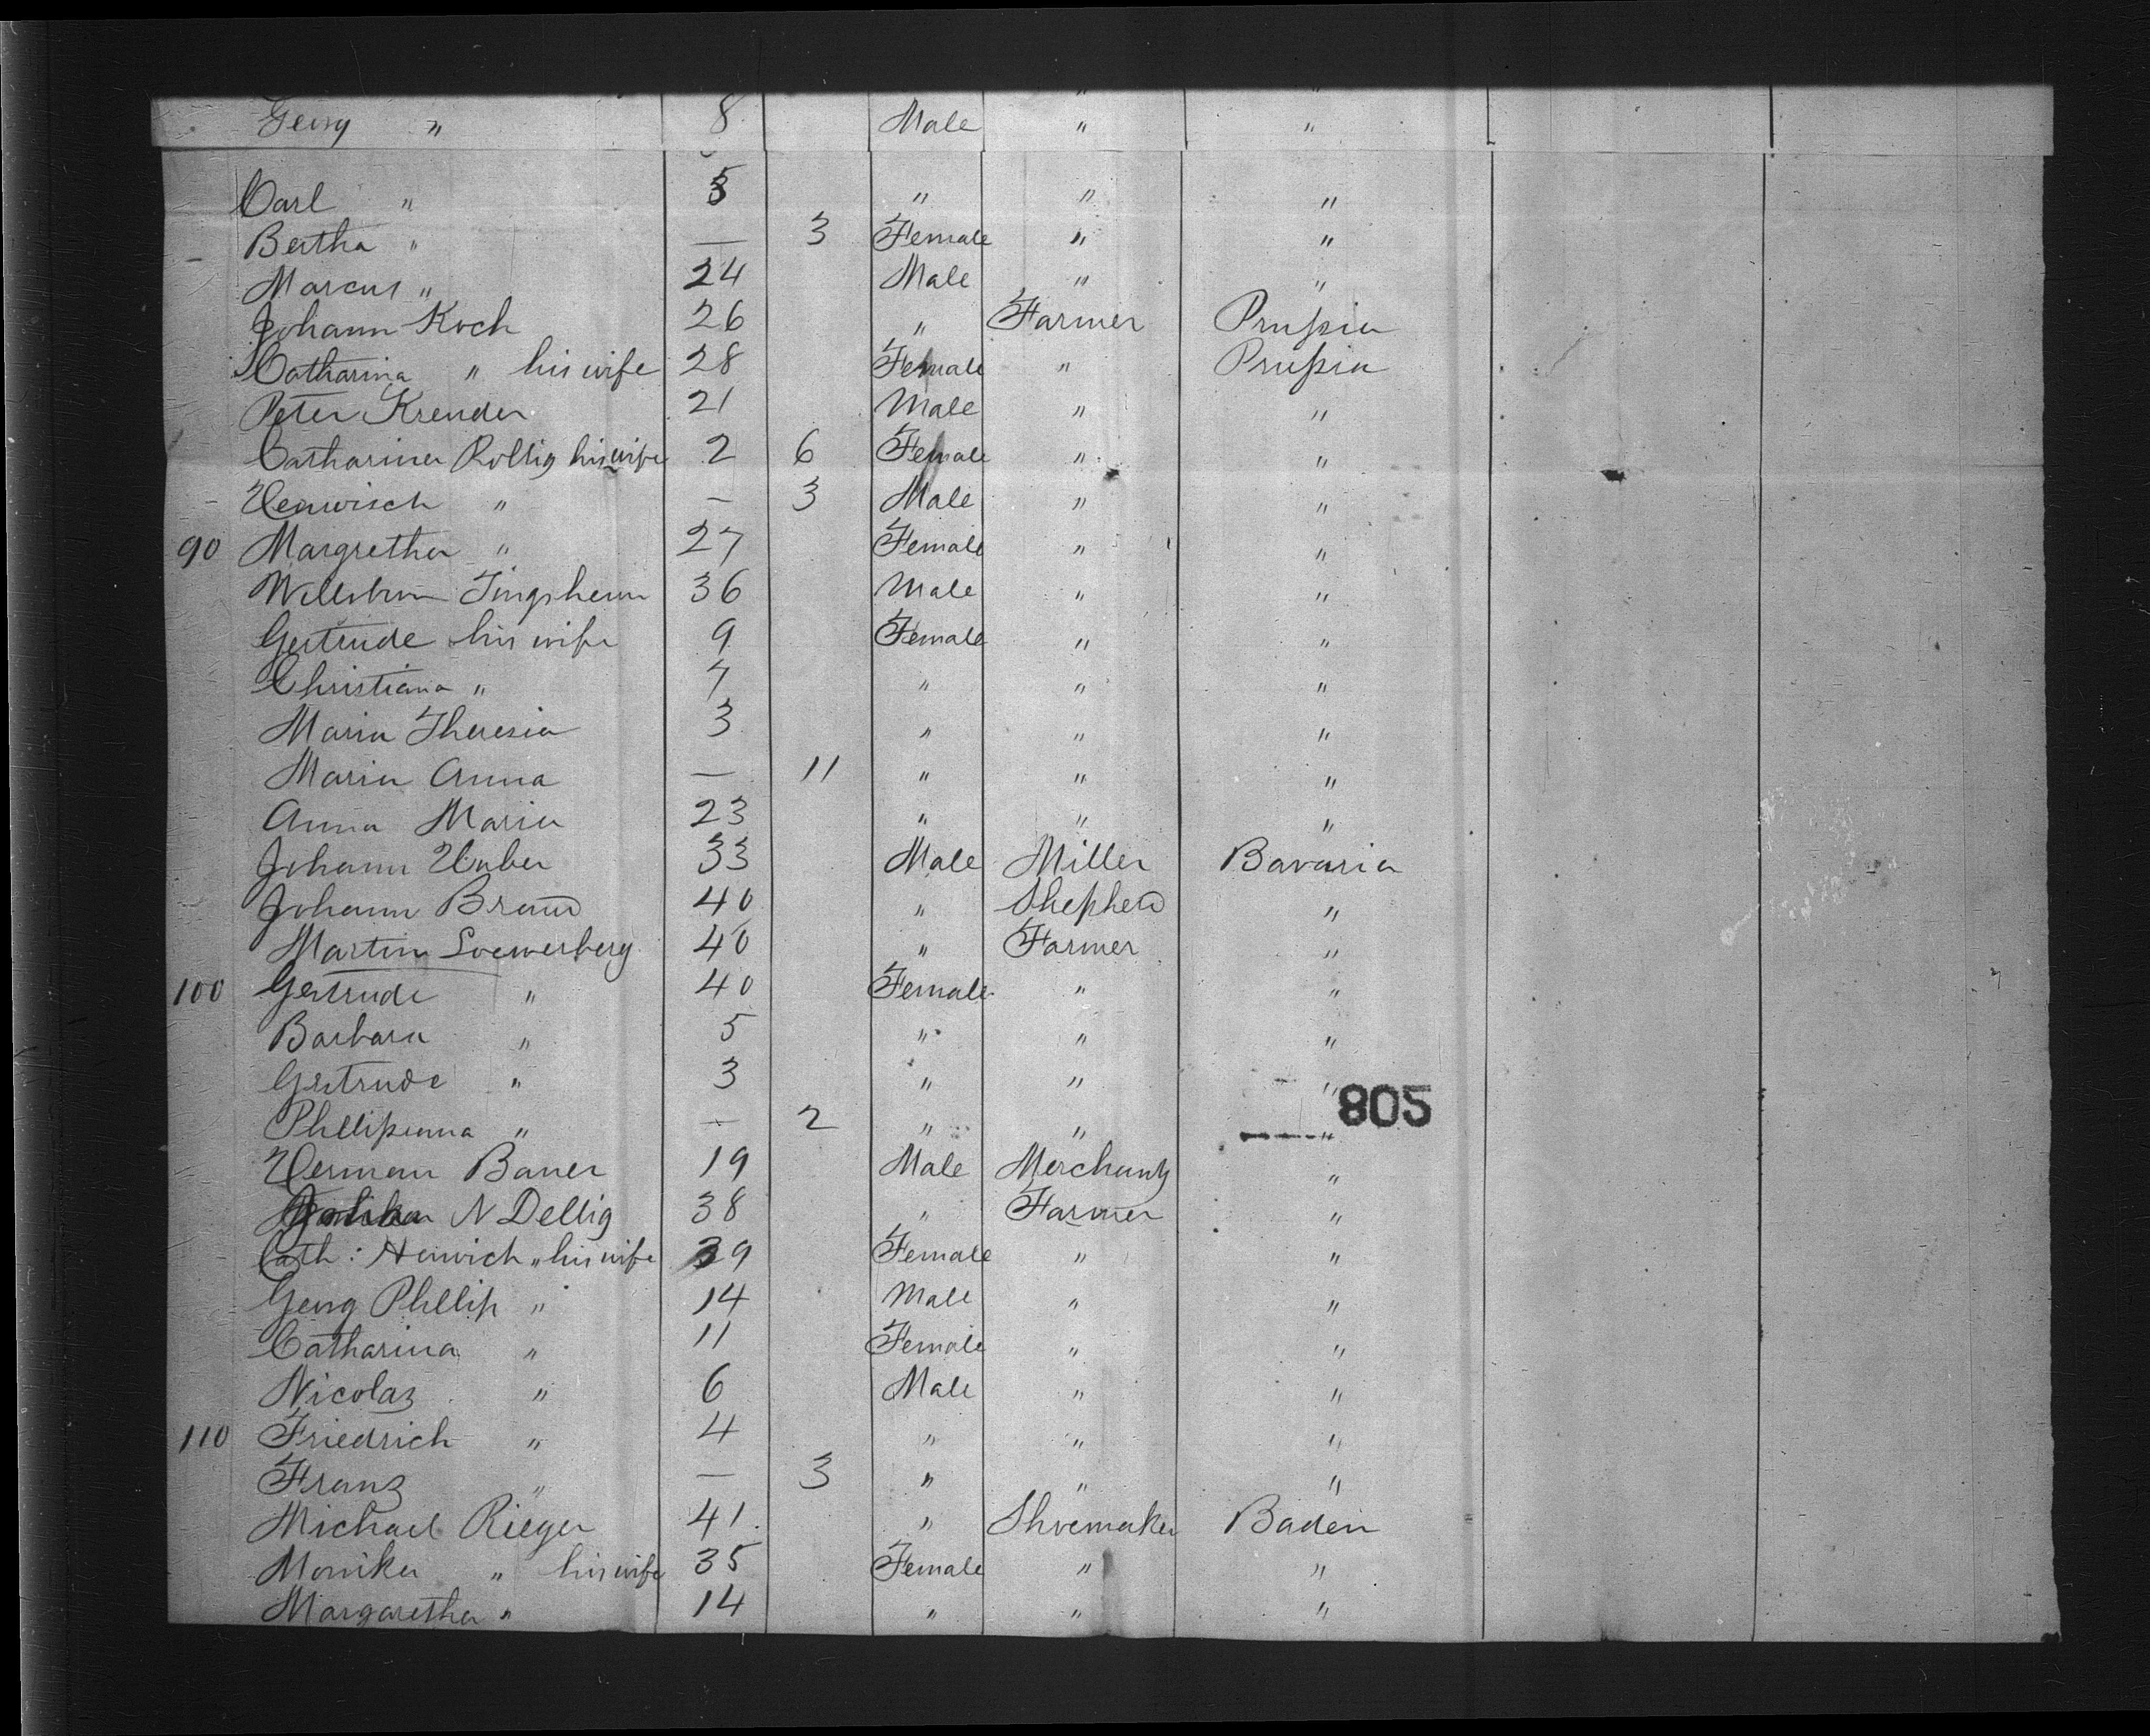 Georg " 8 Male " "
Carl " 5 " " "
Bertha " — 3 Female " "
Marcus " 24 Male " "
Johann Koch 26 " Farmer Prußia
Catharina " his wife 28 Female " Prußia
Peter Kreuder 21 Male " "
Catharina Rollig his wife 2 6 Female " "
Heinrisch " — 3 Male " "
90 Margretha " 27 Female " "
36 Male " "
Gertrude his wife 9 Female " "
Christiana " 7 " " "
Maria Theresia 3 " " "
Maria Anna — 11 " " "
Anna Maria 23 " " "
Johann Huber 33 Male Miller Bavaria
Johann Braun 40 " Shepherd "
Martin Loewerberg 40 " Farmer "
100 Gertrude " 40 Female " "
Barbara " 5 " " "
Gertrude " 3 " " "
805
Phillipinna " — 2 " " "
Herman Bauer 19 Male Merchant "
N Dellig 38 " Farmer "
Cath: Heinrich " his wife 39 Female " "
Georg Phillip " 14 Male " "
Catharina " 11 Female " "
Nicolaz " 6 Male " "
110 Friedrich " 4 " " "
Franz " — 3 " " "
Michael Rieger 41 " Shoemaker Baden
Monika " his wife 35 Female " "
Margaretha " 14 " " "